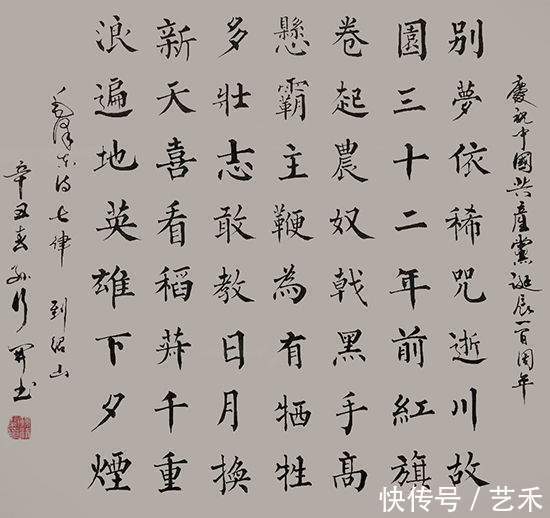 慶祝中國共產黨誕辰一百周年
別夢依稀咒逝川故
園三十二年前紅旗
卷起農奴戟黑手高
懸霸主鞭為有牺牲
多壯志敢教日月換
新天喜看稻菽千重
浪遍地英雄下夕煙
毛澤東詩七律 到韶山
辛丑春孫行書
快传号 / 艺禾